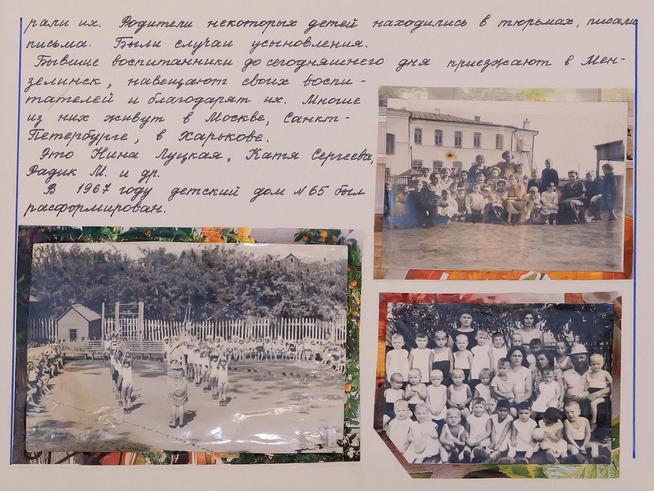 рали их. Родители некоторых детей находились в тюрьмах, писали
письма. Были случаи усыновления.
Бывшие воспитанники до сегодняшнего дня приезжают в Мен-
зелинск, навещают своих воспи-
тателей и благодарят их. Многие
из них живут в Москве, Санкт-
Петербурге, в Харькове.
Это Нина Луцкая, Катя Сергеева,
Радик М. и др.
В 1967 году детский дом №65 был
расформирован.